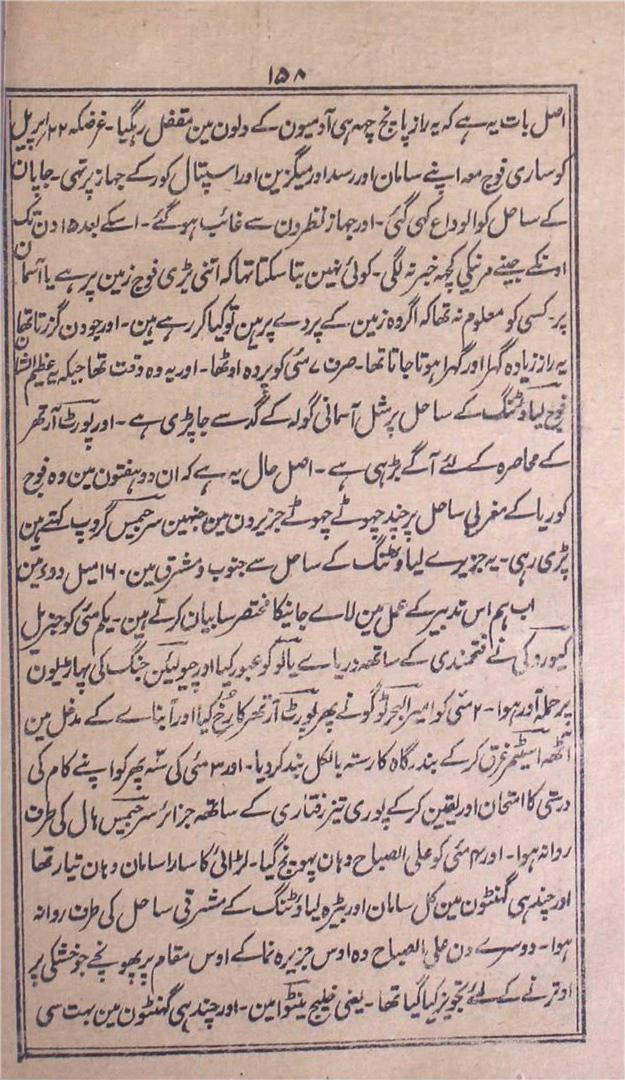 ۱۵۸
اصل بات یہ ہے کہ یہ راز پانچ چہہ ہی آدمیون کے دلون مین مقفل رہگیا۔ غرضکہ ۲۲ اپریل
کو ساری فوج معہ اپنے سامان اور رسد اور میگزین اور اسپتال کور کے جہاز پر تہی۔ جاپان
کے ساحل کو الوداع کہی گئی۔ اور جہاز نظرون سے غائب ہو گئے۔ اسکے بعد ۱۵ دن تک
اونکے جینے مرنیکی کچہہ خبر نہ لگی۔ کوئی نہین بتا سکتا تہا کہ اتنی بڑی فوج زمین پر ہے یا آسمان
پر۔ کسی کو معلوم نہ تھا کہ اگر وہ زمین کے پردے پر ہین تو کیا کر رہے ہین۔ اور جو دن گزرتا تھا
یہ راز زیادہ گہرا اور گہرا ہوتا جاتا تھا۔ صرف ۷ مئی کو پردہ اوٹھا۔ اور یہ وہ وقت تھا جبکہ یہ عظیم الشان
فوج لیاؤٹنگ کے ساحل پر مثل آسمانی گولہ کے گد سے جا پڑی ہے۔ اور پورٹ آرتھر
کے محاصرہ کے لئے آگے بڑہی ہے۔ اصل حال یہ ہے کہ ان دو ہفتون مین وہ فوج
کوریا کے مغربی ساحل پر چند چھوٹے چھوٹے جزیرون مین جنہین سر جمیس گروپ کہتے ہین
پڑی رہی۔ یہ جزیرے لیاؤٹنگ کے ساحل سے جنوب و مشرق مین ۱۶۰ میل دور ہین
اب ہم اس تدبیر کے عمل مین لاے جانیکا مختصر سا بیان کرتے ہین۔ یکم مئی کو جنریل
کیوروکی نے فتحمندی کے ساتھ دریاے یالو کو عبور کیا اور چولیکن جنگ کی پہاڑیون
پر حملہ آور ہوا۔ ۲ مئی کو امیر البحر ٹوگو نے پھر پورٹ آرتھر کا رخ کیا اور آبناے کے مدخل مین
آٹھہ اسٹیمر غرق کر کے بندرگاہ کا رستہ بالکل بند کر دیا۔ اور ۳ مئی کی سہ پہر کو اپنے کام کی
درستی کا امتحان اور یقین کر کے پوری تیز رفتاری کے ساتھہ جزائر سر جمیس ہال کی طرف
روانہ ہوا۔ اور ۴ مئی کو علی الصباح وہان پہونچ گیا۔ لڑائی کا سارا سامان وہان تیار تھا
اور چند ہی گہنٹون مین کل سامان اور بیڑہ لیاؤٹنگ کے مشرقی ساحل کی طرف روانہ
ہوا۔ دوسرے دن علی الصباح وہ اوس جزیرہ نما کے اوس مقام پر پہونچے جو خشکی پر
اوترنے کے لئے تجویز کیا گیا تھا۔ یعنی خلیج ینٹوا مین۔ اور چند ہی گھنٹون مین بہت سی